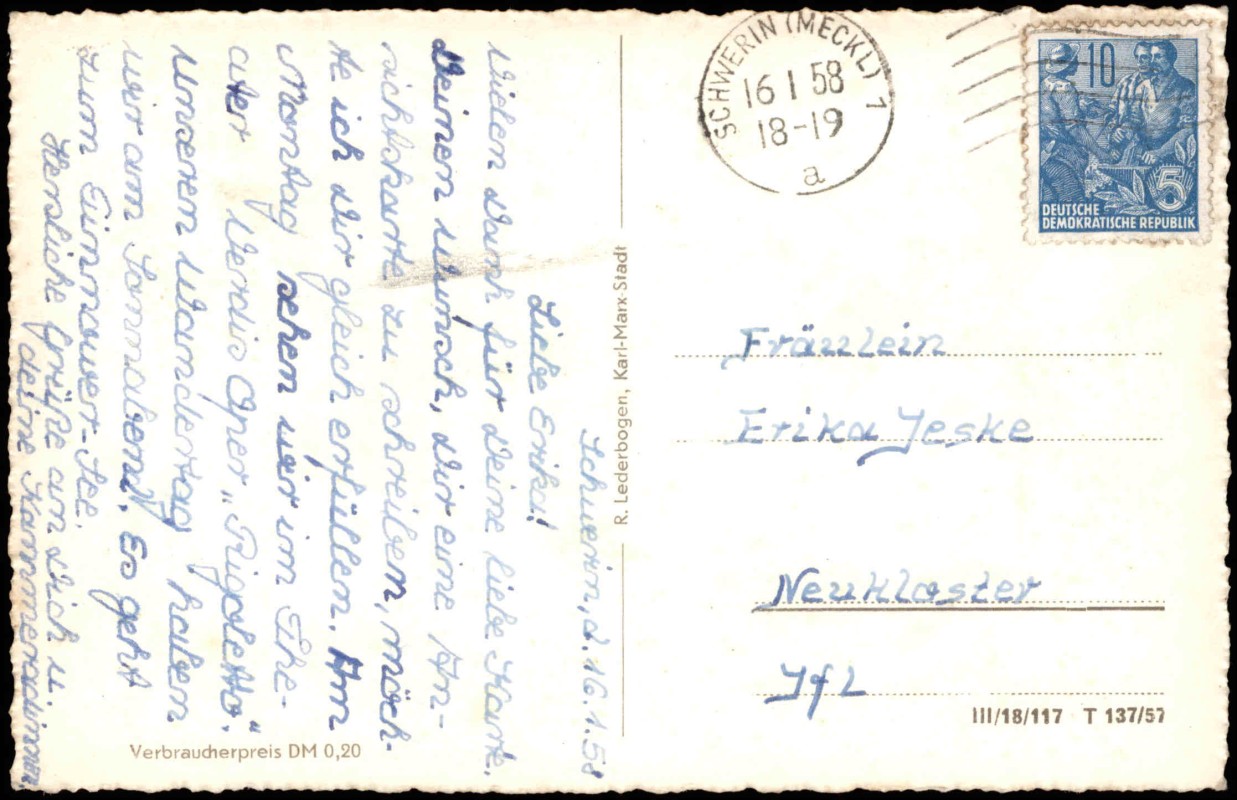 Schwerin, d. 16.1.58
Liebe Erika!
Vielen Dank für Deine liebe Karte.
Deinen Wunsch, Dir eine An-
sichtskarte zu schreiben, möch-
te ich Dir gleich erfüllen. Am
Montag sehen wir im The-
ater Verdis Oper „Rigoletto“.
Unseren Wandertag haben
wir am Sonnabend. Es geht
zum Pinnower-See.
Herzliche Grüße an Dich u.
deine Kammeradinnen.
Verbraucherpreis DM 0,20
R. Lederbogen, Karl-Marx-Stadt
SCHWERIN (MECKL) 1
16 1 58
18-19
a
10
5
DEUTSCHE
DEMOKRATISCHE REPUBLIK
Fräulein
Erika Jeske
Neukloster
JfL
III/18/117 T 137/57